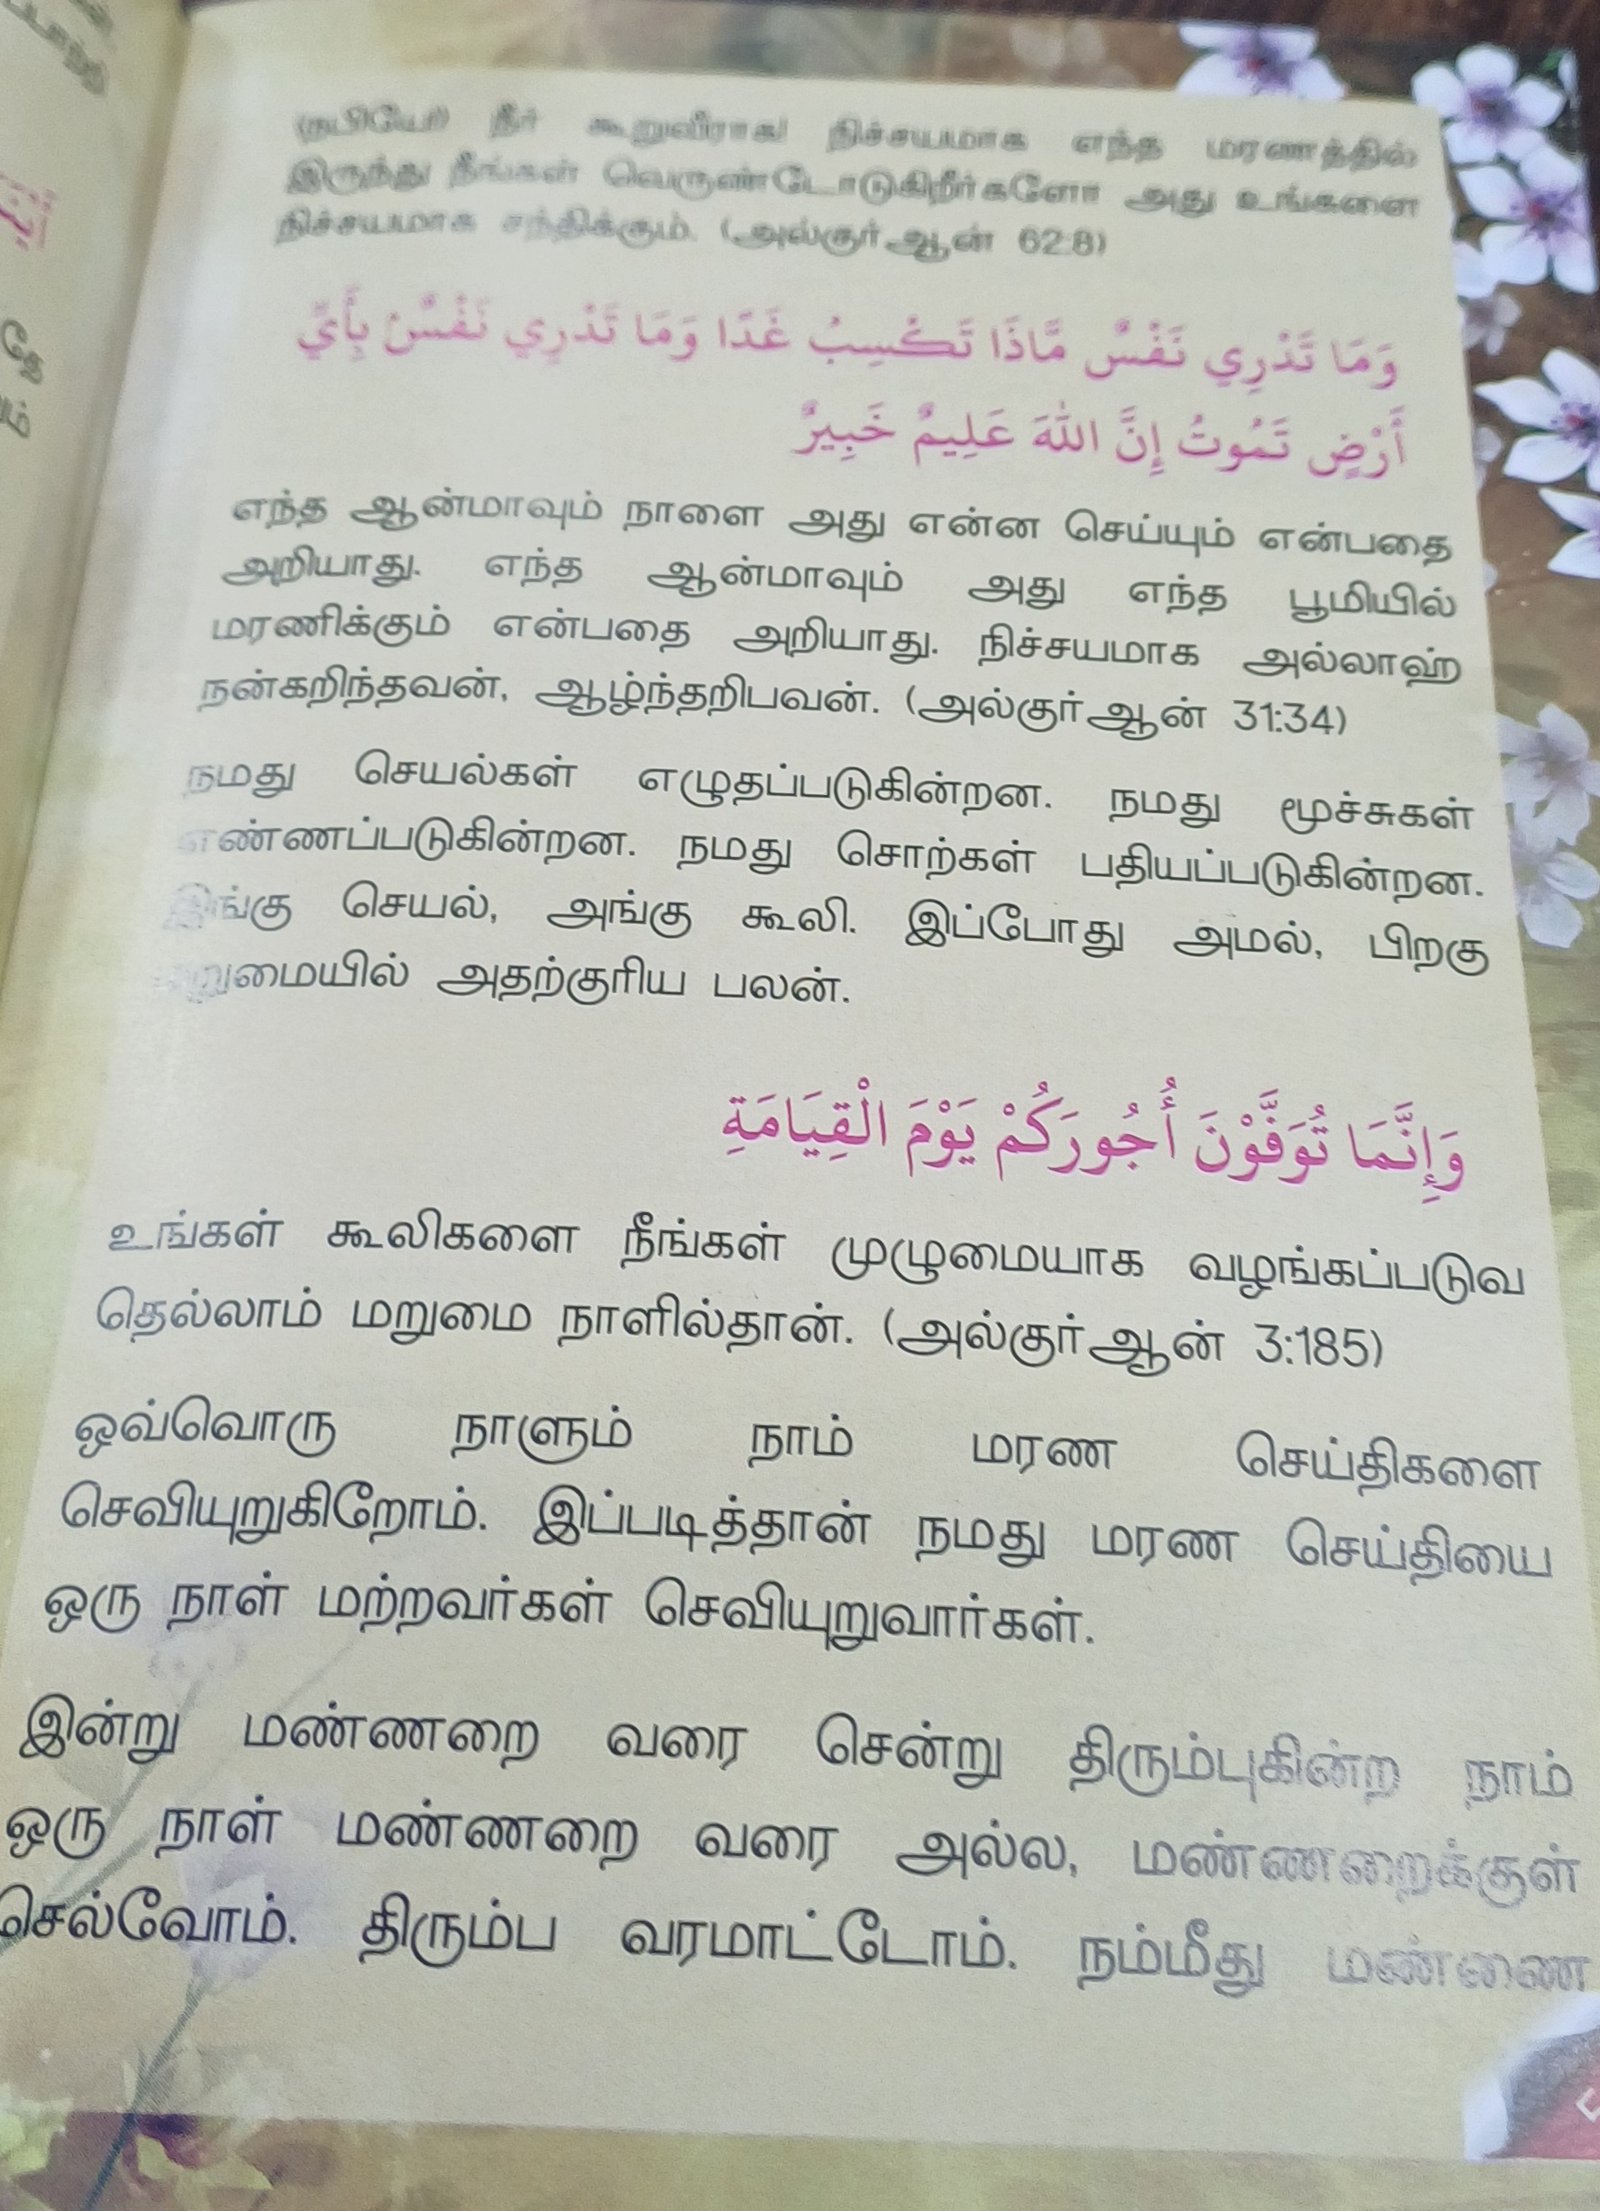 (நபியே!) நீர் கூறுவீராக! நிச்சயமாக எந்த மரணத்தில்
இருந்து நீங்கள் வெருண்டோடுகிறீர்களோ அது உங்களை
நிச்சயமாக சந்திக்கும். (அல்குர்ஆன் 62:8)
وَمَا تَدْرِي نَفْسٌ مَّاذَا تَكْسِبُ غَدًا وَمَا تَدْرِي نَفْسٌ بِأَيِّ
أَرْضٍ تَمُوتُ إِنَّ اللَّهَ عَلِيمٌ خَبِيرٌ
எந்த ஆன்மாவும் நாளை அது என்ன செய்யும் என்பதை
அறியாது. எந்த ஆன்மாவும் அது எந்த பூமியில்
மரணிக்கும் என்பதை அறியாது. நிச்சயமாக அல்லாஹ்
நன்கறிந்தவன், ஆழ்ந்தறிபவன். (அல்குர்ஆன் 31:34)
நமது செயல்கள் எழுதப்படுகின்றன. நமது மூச்சுகள்
எண்ணப்படுகின்றன. நமது சொற்கள் பதியப்படுகின்றன.
இங்கு செயல், அங்கு கூலி. இப்போது அமல், பிறகு
மறுமையில் அதற்குரிய பலன்.
وَإِنَّمَا تُوَفَّوْنَ أُجُورَكُمْ يَوْمَ الْقِيَامَةِ
உங்கள் கூலிகளை நீங்கள் முழுமையாக வழங்கப்படுவ
தெல்லாம் மறுமை நாளில்தான். (அல்குர்ஆன் 3:185)
ஒவ்வொரு நாளும் நாம் மரண செய்திகளை
செவியுறுகிறோம். இப்படித்தான் நமது மரண செய்தியை
ஒரு நாள் மற்றவர்கள் செவியுறுவார்கள்.
இன்று மண்ணறை வரை சென்று திரும்புகின்ற நாம்
ஒரு நாள் மண்ணறை வரை அல்ல, மண்ணறைக்குள்
செல்வோம். திரும்ப வரமாட்டோம். நம்மீது மண்ணை